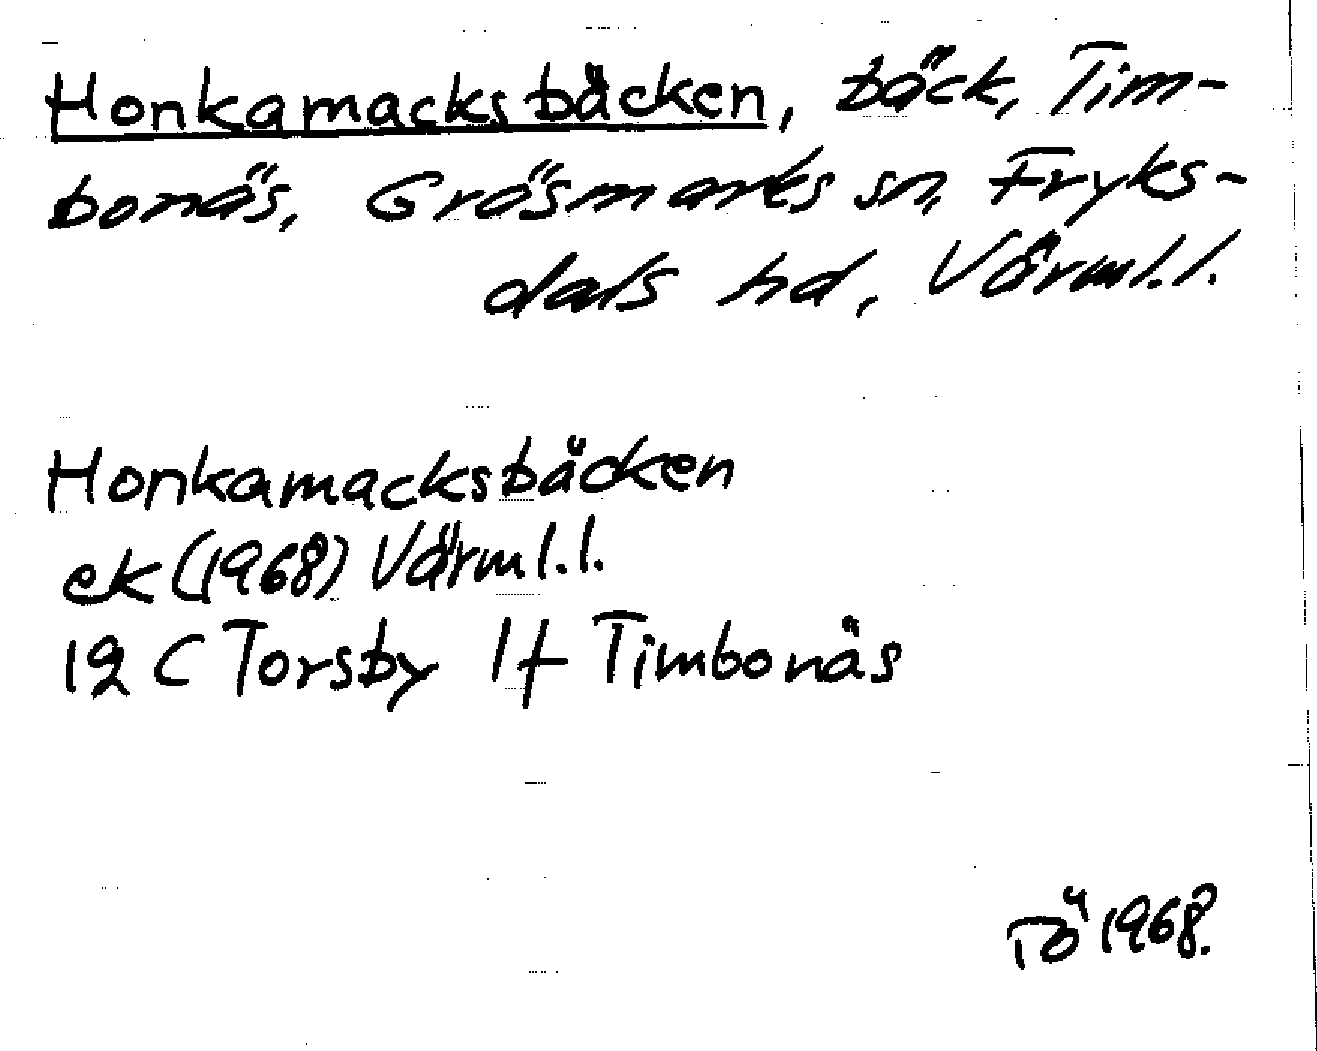 Honkamacksbäcken, bäck, Tim-
bonäs, Gräsmarks sn, Fryks-
dals hd, Värml.l.
Honkamacksbäcken
ek (1968) Värml.l.
12 C Torsby 1f Timbonäs
TÖ 1968.